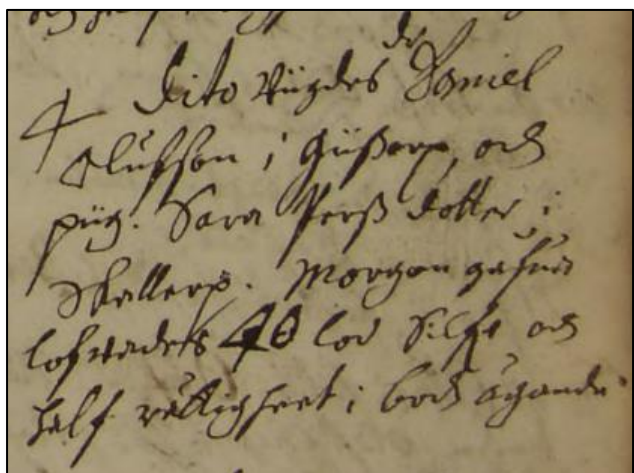 4 Dito Vigdes dr Daniel
Olufson i Gußarp, och
pig. Sara Perß dotter i
Skallerp. Morgon gåfwa
lofwades 40 lod Silfr och
half rättigheet i bod ägande